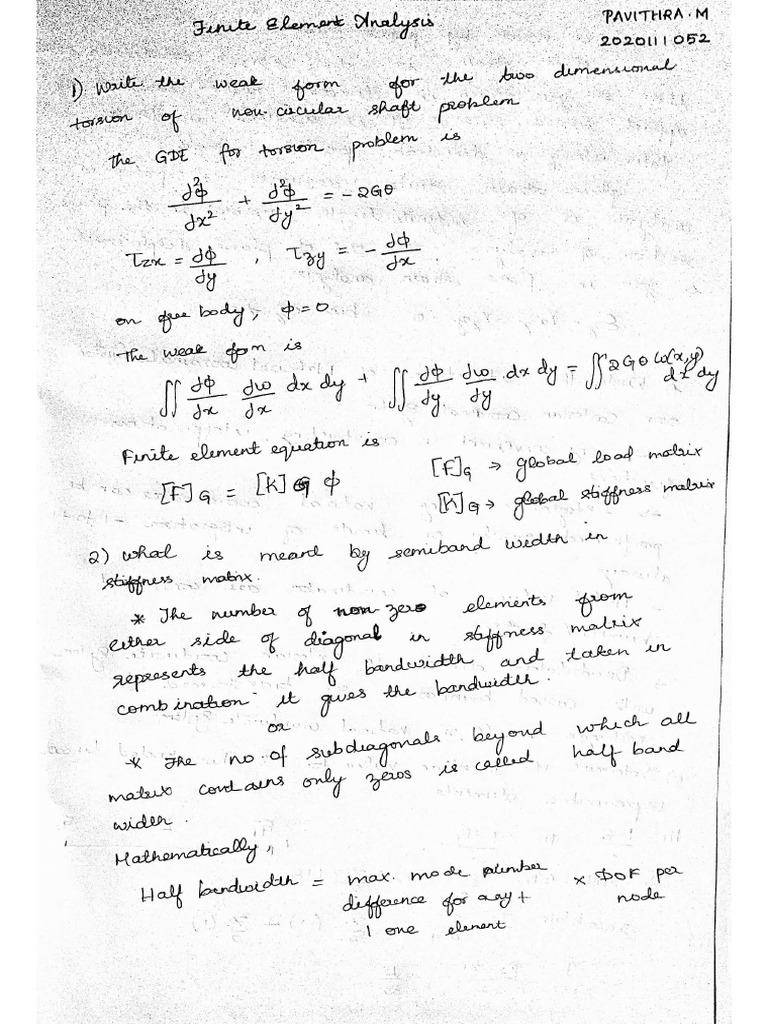 Finite Element Analysis
PAVITHRA.M
2020111052
1) Write the weak form for the two dimensional
torsion of non-circular shaft problem
the GDE for torsion problem is
∂²Φ/∂x² + ∂²Φ/∂y² = -2Gθ
τzx = ∂Φ/∂y , τzy = -∂Φ/∂x .
on free body, Φ=0
The weak form is
∬ ∂Φ/∂x ∂ω/∂x dx dy + ∬ ∂Φ/∂y ∂ω/∂y dx dy = ∬ 2Gθ ω(x,y) dx dy
Finite element equation is
[F]G = [K]G Φ
[F]G → global load matrix
[K]G → global stiffness matrix
2) what is meant by semiband width in
stiffness matrix.
* The number of non-zero elements from
either side of diagonal in stiffness matrix
represents the half bandwidth and taken in
combination it gives the bandwidth.
or
* The no. of subdiagonals beyond which all
matrix contains only zeros is called half band
width.
Mathematically,
Half bandwidth = max. node number × DOF per
difference for any + node
1 one element